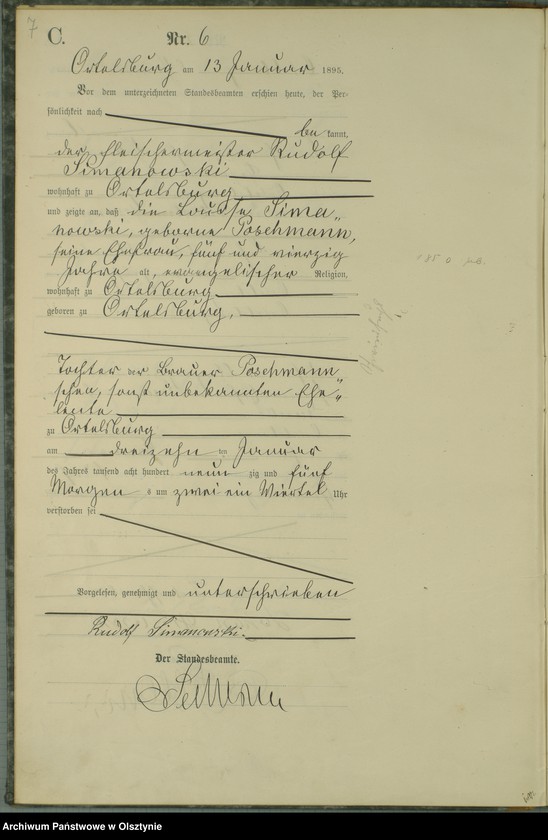 7
C.
Nr. 6
Ortelsburg am 13 Januar 1895.
Vor dem unterzeichneten Standesbeamten erschien heute, der Per-
sönlichkeit nach
bekannt,
der Fleischermeister Rudolf
Simanowski
wohnhaft zu Ortelsburg
und zeigte an, daß die Louise Sima„
nowski, geborne Poschmann,
seine Ehefrau, fünf und vierzig
Jahre alt, evangelischer Religion,
wohnhaft zu Ortelsburg
geboren zu Ortelsburg,
Tochter der Brauer Poschmann
schen, sonst unbekannten Ehe„
leute
zu Ortelsburg
am dreizehn ten Januar
des Jahres tausend acht hundert neun zig und fünf
Morgen s um zwei ein Viertel Uhr
verstorben sei
Vorgelesen, genehmigt und unterschrieben
Rudolf Simanowski.
Der Standesbeamte.
Archiwum Państwowe w Olsztynie